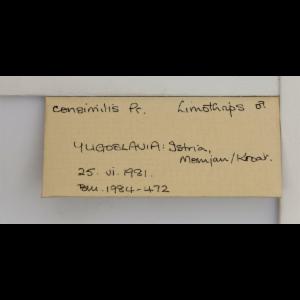 consimilis Pr. Limothrips ♂
YUGOSLAVIA: Istria,
Momjan/Kroat.
25. vi. 1981.
B.M. 1984-472